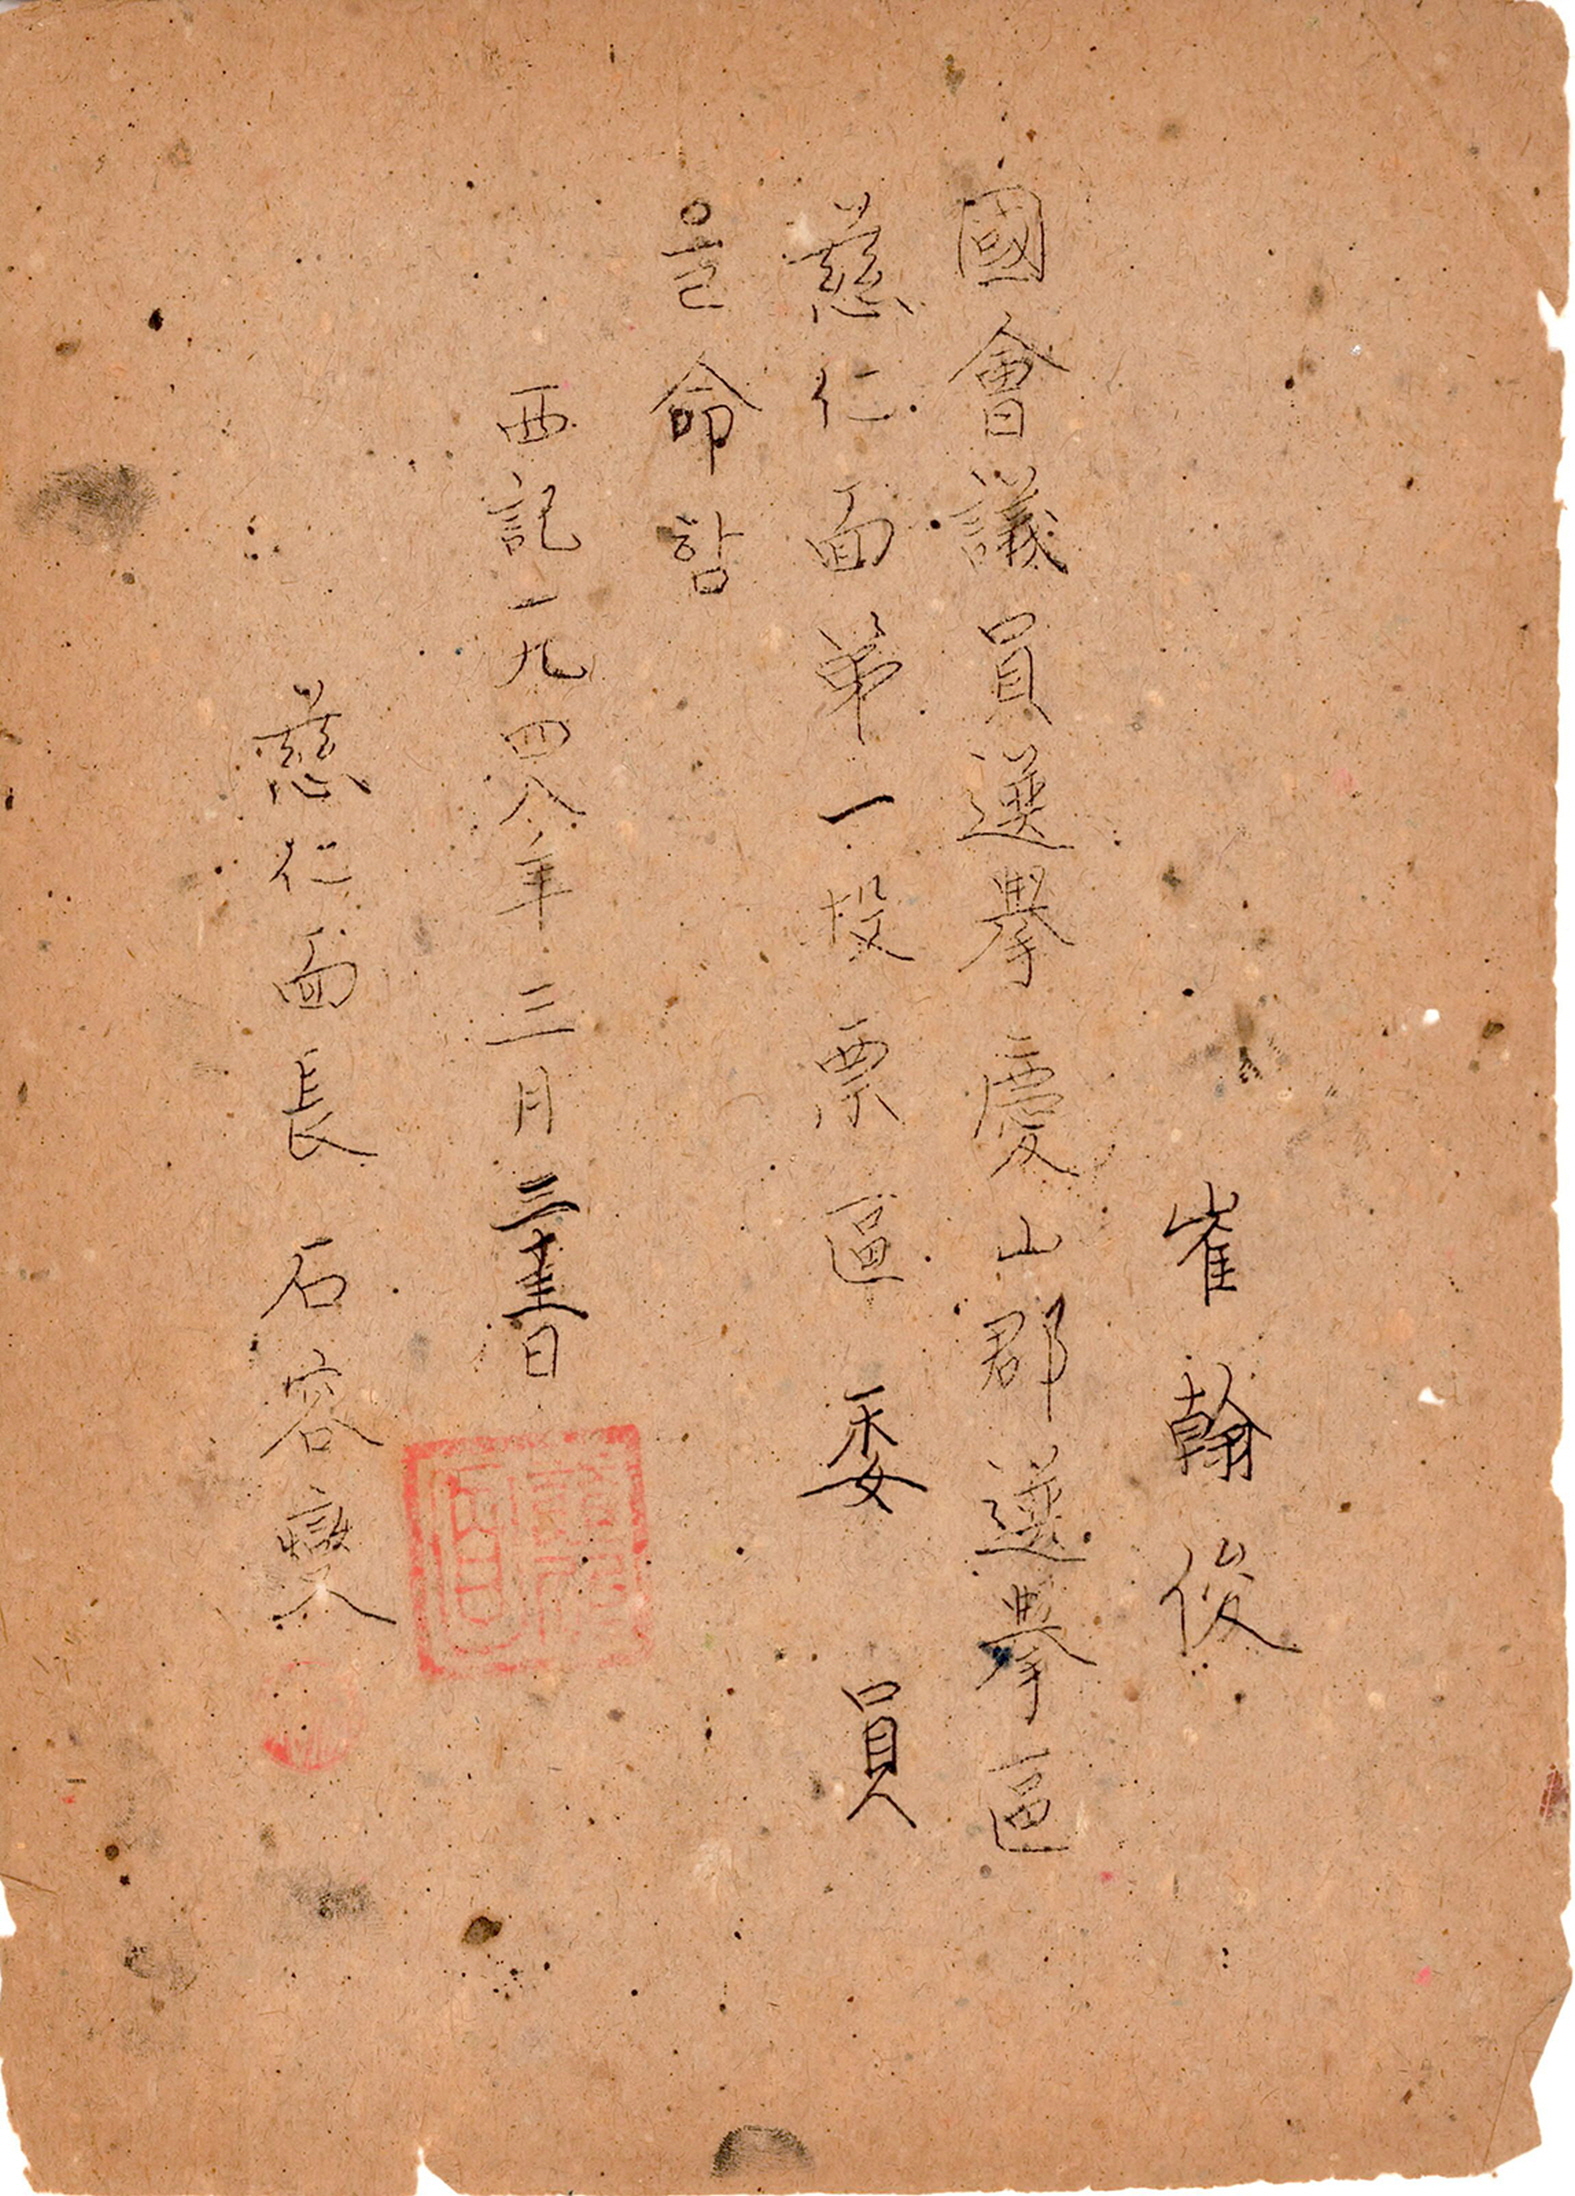 崔翰俊
國會議員選擧慶山郡選擧區
慈仁面第一投票區委員
을命함
西記一九四八年三月三十日
慈仁面長石容燮